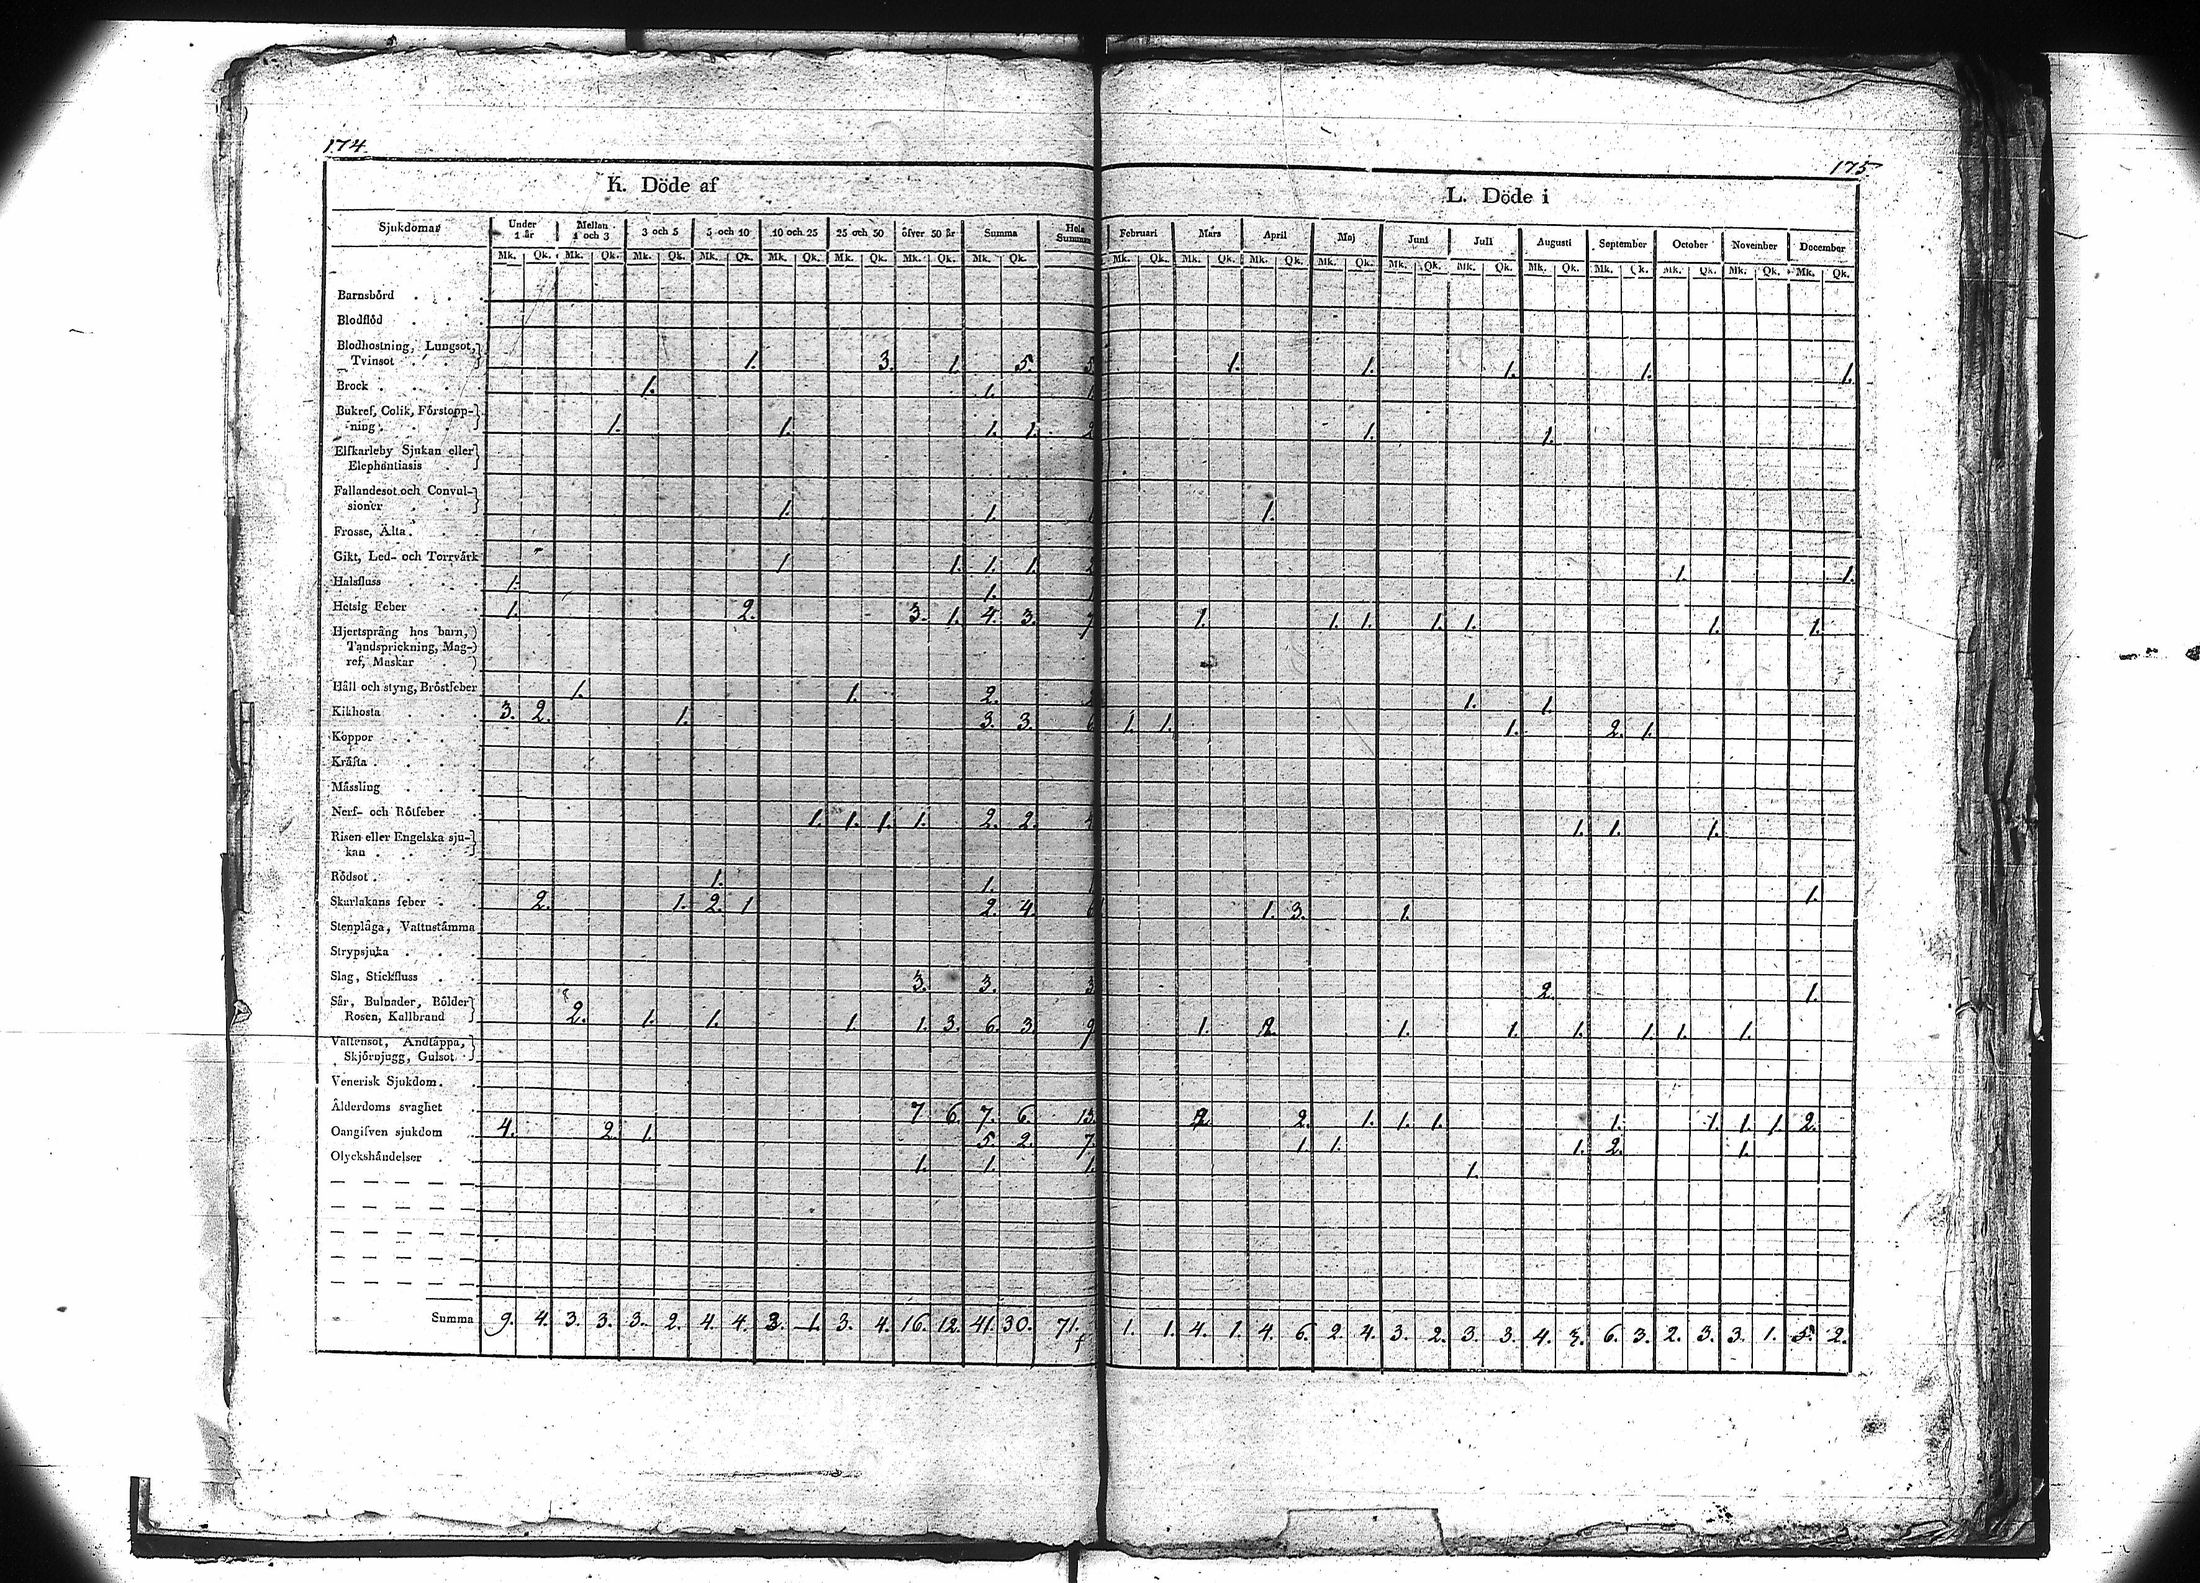 174.
K. Döde af
Sjukdomar Under 1 år Mellan 1 och 3 3 och 5 5 och 10 10 och 25 25 och 50 öfver 50 år Summa Hela Summan
Mk. Qk. Mk. Qk. Mk. Qk. Mk. Qk. Mk. Qk. Mk. Qk. Mk. Qk. Mk. Qk.
Barnsbörd
Blodflöd
Blodhostning, Lungsot,
Tvinsot 1. 3. 1. 5. 5
Brock 1. 1. 1
Bukref, Colik, Förstopp-
ning 1. 1. 1. 1. 2
Elfkarleby Sjukan eller
Elephantiasis
Fallandesot och Convul-
sioner 1. 1. 1
Frosse, Älta
Gikt, Led- och Torrvärk 1 1. 1. 1. 2
Halsfluss 1. 1. 1
Hetsig Feber 1. 2. 3. 1. 4. 3. 7
Hjertsprång hos barn,
Tandsprickning, Mag-
ref, Maskar
Håll och styng, Bröstfeber 1. 1. 2.
Kikhosta 3. 2. 1. 3. 3. 6
Koppor
Kräfta
Mässling
Nerf- och Rötfeber 1. 1. 1. 1. 2. 2. 4
Risen eller Engelska sju-
kan
Rödsot 1. 1. 1
Skarlakans feber 2. 1. 2. 1 2. 4. 6
Stenplåga, Vattustämma
Strypsjuka
Slag, Stickfluss 3. 3. 3
Sår, Bulnader, Bölder
Rosen, Kallbrand 2. 1. 1. 1. 1. 3. 6. 3. 9
Vattensot, Andtäppa,
Skjörbjugg, Gulsot
Venerisk Sjukdom
Ålderdoms svaghet 7 6. 7. 6. 13.
Oangifven sjukdom 4. 2. 1. 5. 2. 7.
Olyckshändelser 1. 1. 1.
Summa 9. 4. 3. 3. 3. 2. 4. 4. 3. 1. 3. 4. 16. 12. 41. 30. 71.
175
L. Döde i
Februari Mars April Maj Juni Juli Augusti September October November December
Mk. Qk. Mk. Qk. Mk. Qk. Mk. Qk. Mk. Qk. Mk. Qk. Mk. Qk. Mk. Qk. Mk. Qk. Mk. Qk. Mk. Qk.
1. 1. 1. 1. 1.
1. 1.
1.
1. 1.
1. 1. 1. 1. 1. 1. 1.
1. 1.
1. 1. 1. 2. 1.
1. 1. 1.
1.
1. 3. 1.
2. 1.
1. 2. 1. 1. 1. 1. 1. 1.
2 2. 1. 1. 1. 1. 1 1. 1. 2.
1. 1. 1. 2. 1.
1.
1. 1. 4. 1. 4. 6. 2. 4. 3. 2. 3. 3. 4. 3. 6. 3. 2. 3. 3. 1. 5. 2.